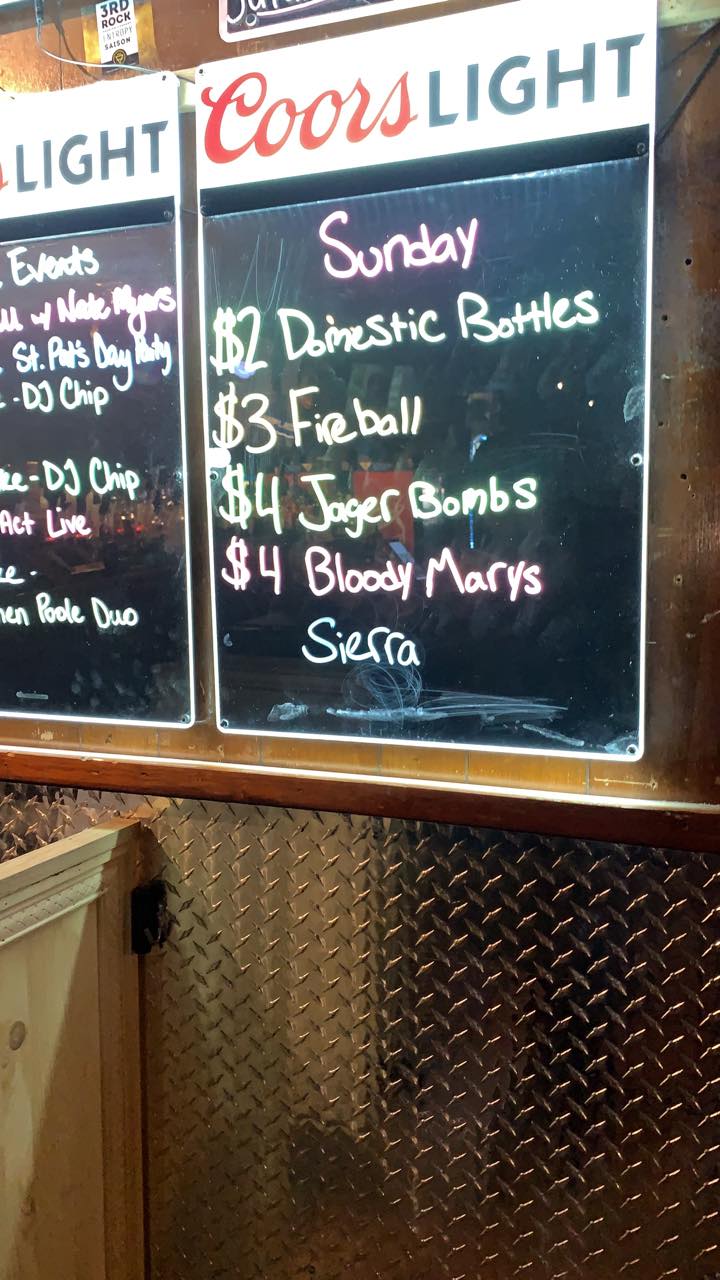 3RD
ROCK
ENTROPY
SAISON
LIGHT
Events
w/ Nate Myers
St. Pat's Day Party
- DJ Chip
- DJ Chip
Act Live
Poole Duo
Coors LIGHT
Sunday
$2 Domestic Bottles
$3 Fireball
$4 Jager Bombs
$4 Bloody Marys
Sierra